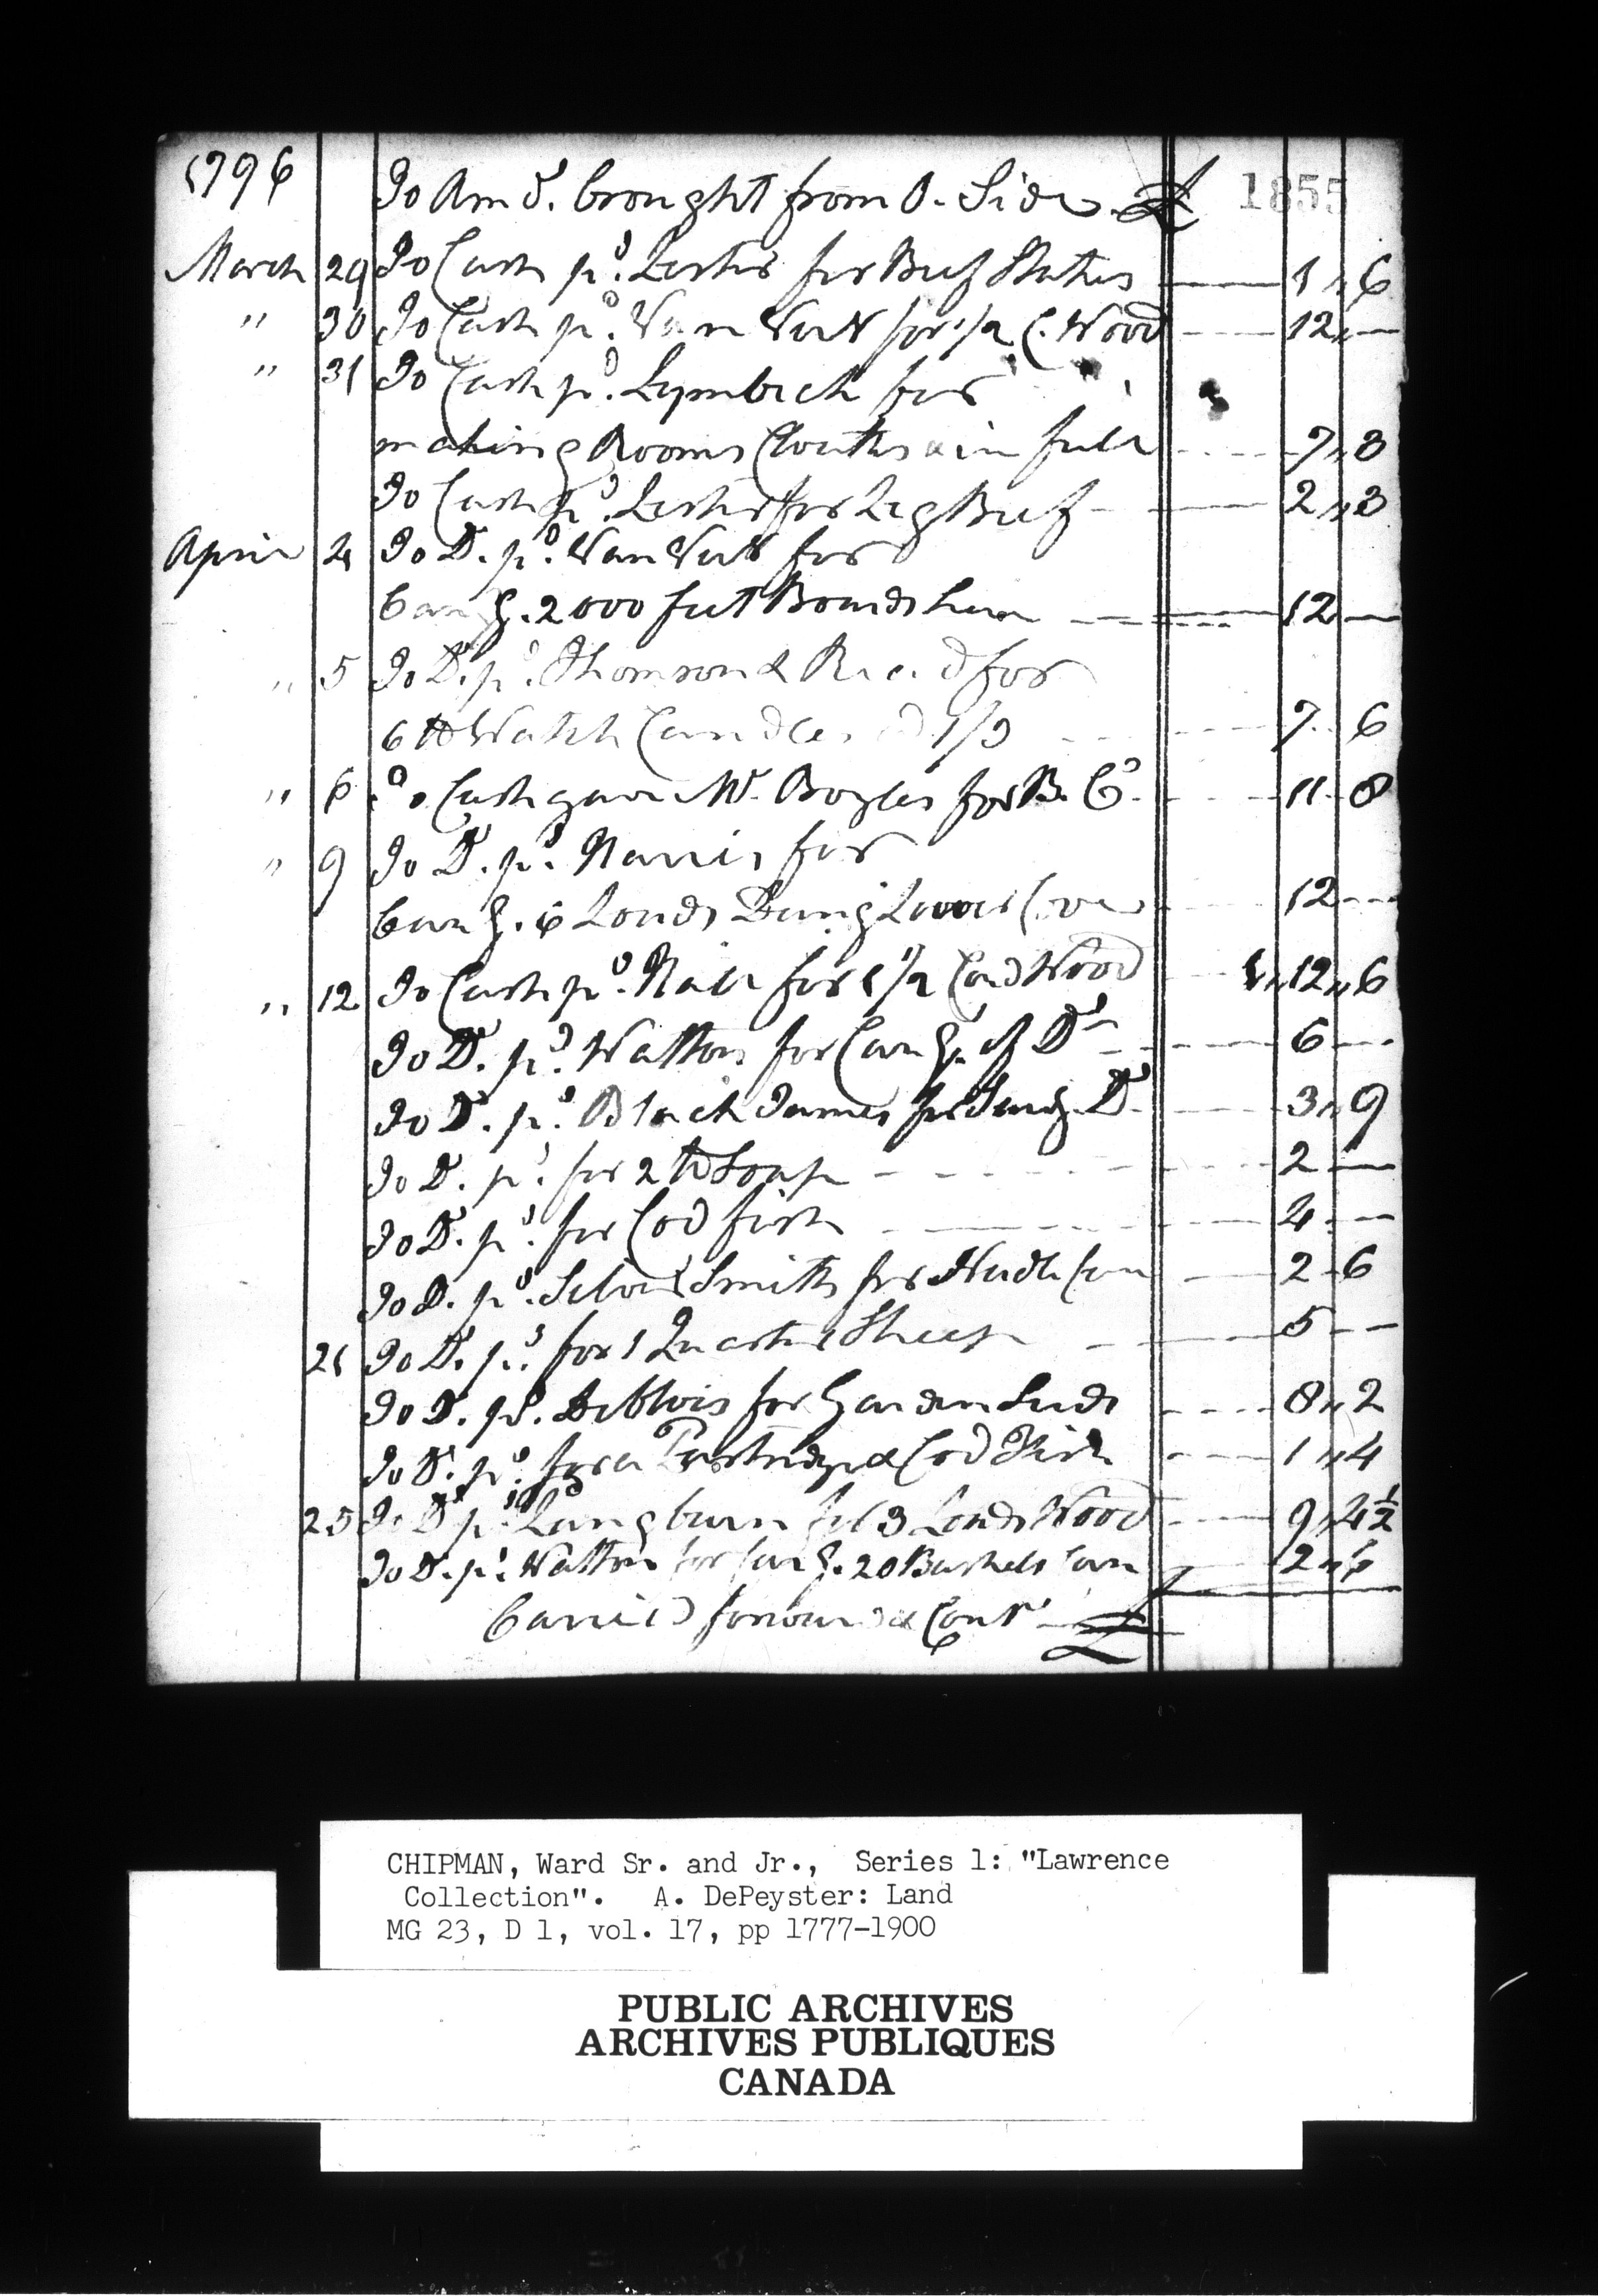 1796 To Am.t brought from O. Side £ 1855
March 29 To Cash p.d Lester for Beef Stakes 1 " 6
" 30 To Cash p.d Van Vort for 1/2 C. Wood 12 " —
" 31 To Cash p.d Lymbeck for
making Rooms Cloaths in full 7 " 3
To Cash p.d Lester for Leg Beef 2 " 3
April 4 To D.o p.d Van Vort for
Carr.g 2000 feet Boards 12 —
" 5 To D.o p.d Thomson & Reed for
6 lb Watch Candles @ 1/3 7 6
" 6 To Cash gave Mr. Boyles for B. Co. 11 8
" 9 To D.o p.d Harris for
Carr.g 6 Loads Dung Lower Cove 12 —
" 12 To Cash p.d Nase for 1 1/2 Cord Wood 1 " 12 " 6
To D.o p.d Watton for Carr.g of D.o 6 —
To D.o p.d Black James for Saw.g D.o 3 " 9
To D.o p.d for 2 lb Soap 2 —
To D.o p.d for Cod fish 4 —
To D.o p.d Silver Smith for Needle Case 2 6
21 To D.o p.d for 1 Quarter Sheep 5 —
To D.o p.d Deblois for Garden Seeds 8 " 2
To D.o p.d for a Partridge & Cod Fish 1 " 4
25 To D.o p.d Langburn for 3 Loads Wood 9 " 4 1/2
To D.o p.d Watton for Carr.g 20 Bushels 2 " 6
Carried forward & Cont.d £
CHIPMAN, Ward Sr. and Jr., Series 1: "Lawrence
Collection". A. DePeyster: Land
MG 23, D 1, vol. 17, pp 1777-1900
PUBLIC ARCHIVES
ARCHIVES PUBLIQUES
CANADA